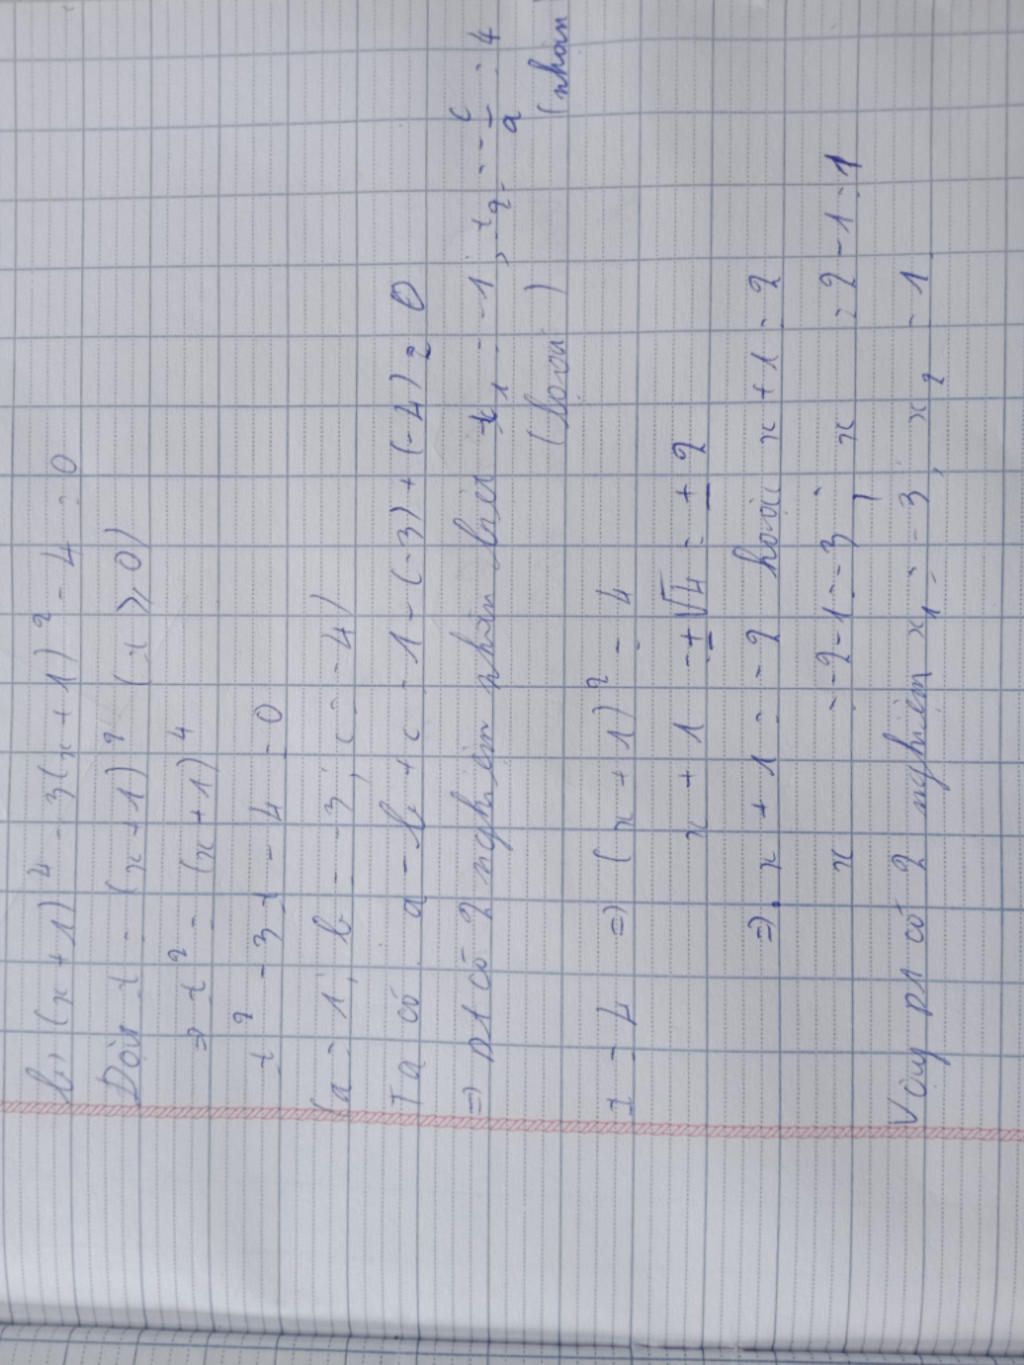 b, (x + 1)⁴ - 3(x + 1)² - 4 = 0
Đặt t = (x + 1)² (t ≥ 0)
⇒ t² = (x + 1)⁴
t² - 3t - 4 = 0
(a = 1, b = -3, c = -4)
Ta có a - b + c = 1 - (-3) + (-4) = 0
⇒ pt có 2 nghiệm phân biệt t₁ = -1, t₂ = -c/a = 4
(loại) (nhận
t = 4 ⇒ (x + 1)² = 4
x + 1 = ±√4 = ±2
⇒ x + 1 = -2 hoặc x + 1 = 2
x = -2 - 1 = -3, x = 2 - 1 = 1
Vậy pt có 2 nghiệm x₁ = -3, x₂ = 1